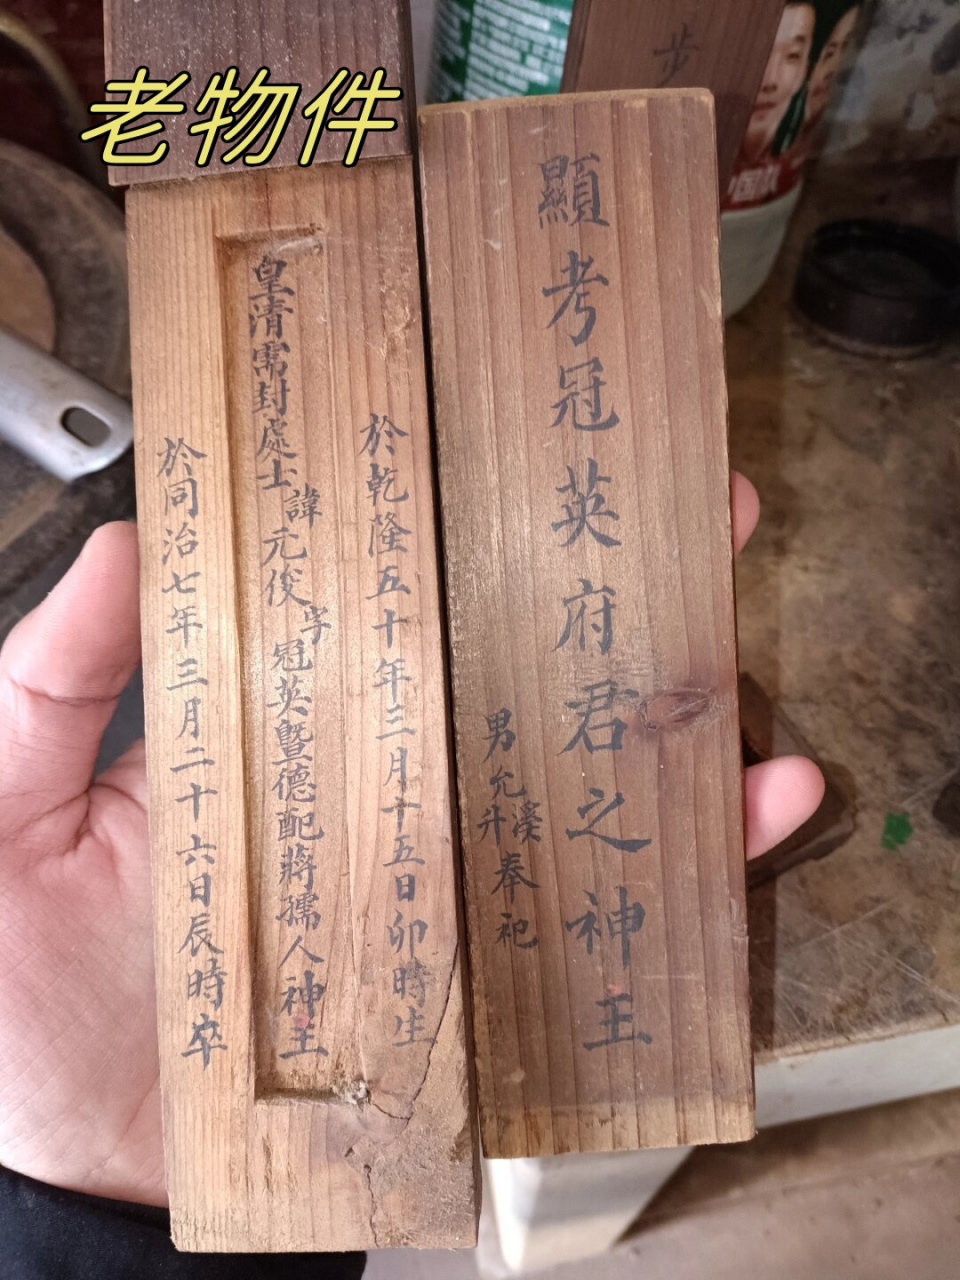 老物件
步
中国队
顯考冠英府君之神主
男允升奉祀
於乾隆五十年三月十五日卯時生
皇清需封處士諱元俊字冠英暨德配蔣孺人神主
於同治七年三月二十六日辰時卒